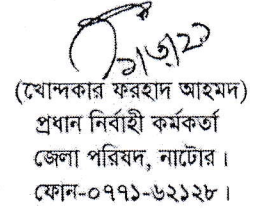 (খোন্দকার ফরহাদ আহমদ)
প্রধান নির্বাহী কর্মকর্তা
জেলা পরিষদ, নাটোর।
ফোন-০৭৭১-৬২১২৮।